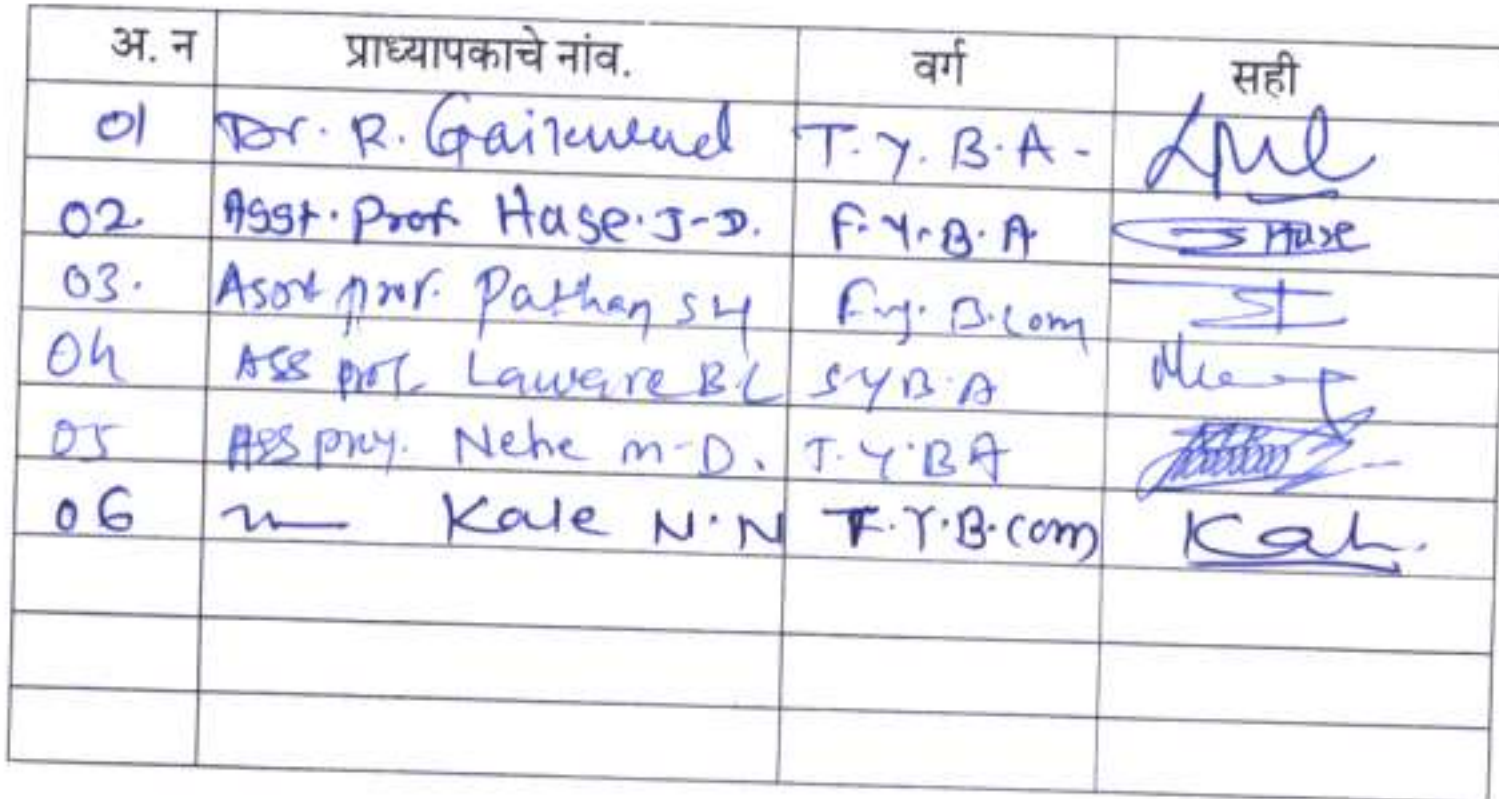 अ. न प्राध्यापकाचे नांव. वर्ग सही
01 Dr. R. Gaikwad T.Y.B.A-
02. Asst. Prof. Hase.J-D. F.Y.B.A Hase
03. Pathan F.Y. B.com
04 Ass prof. Laware B.L SYB.A
05 Ass prof. Nehe M-D. T.Y.BA
06 Kale N.N F.Y.B.com Kale